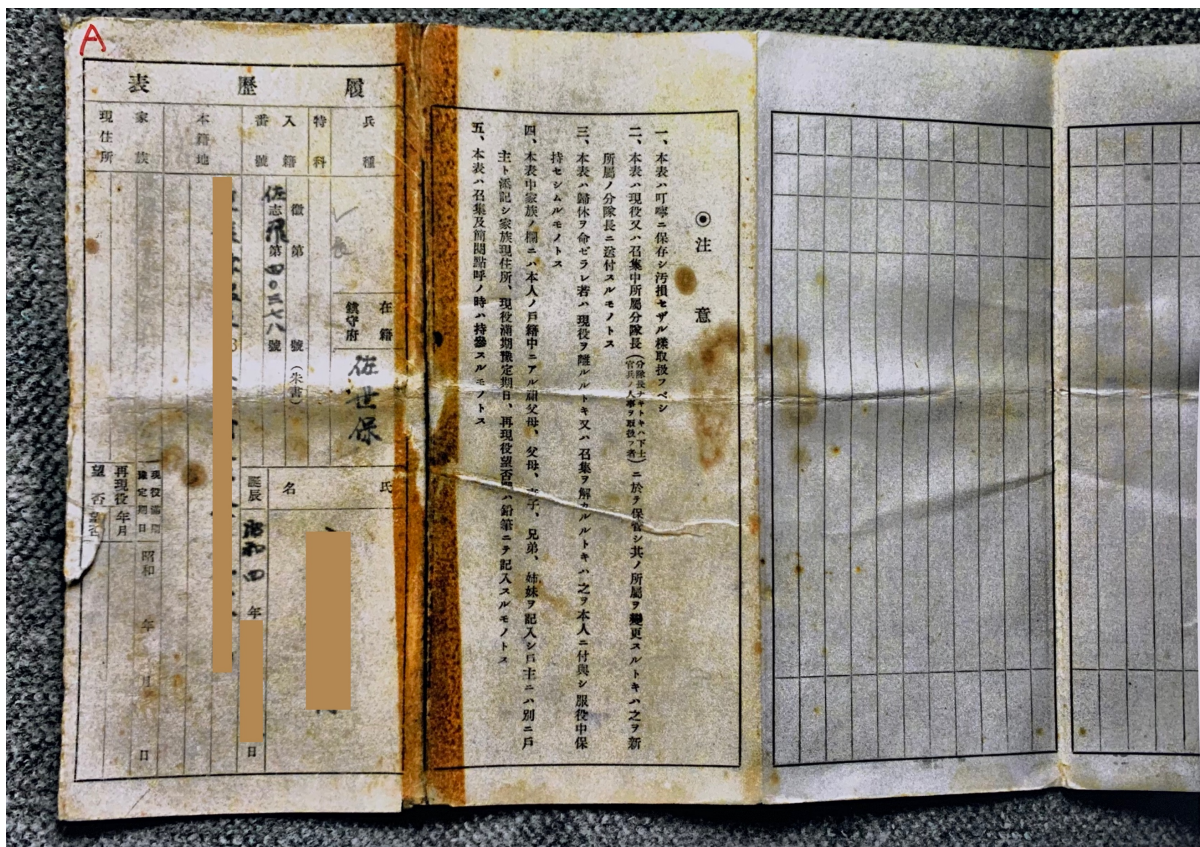 A
履歴表
兵種
特科
入籍番號
徴第 號
佐志飛第四〇三七八號
(朱書)
在籍鎮守府
佐世保
氏名
誕辰
昭和四年 日
本籍地
家族
現住所
現役満期豫定期日
昭和 年 月 日
再現役望否
年月
望否
◉注意
一、本表ハ叮嚀ニ保存シ汚損セザル樣取扱フベシ
二、本表ハ現役又ハ召集中所屬分隊長(分隊長ナキトキハ下士官兵ノ人事ヲ取扱フ者)ニ於テ保管シ其ノ所屬ヲ變更スルトキハ之ヲ新
所屬ノ分隊長ニ送付スルモノトス
三、本表ハ歸休ヲ命ゼラレ若ハ現役ヲ離ルルトキ又ハ召集ヲ解カルルトキハ之ヲ本人ニ付與シ服役中保
持セシムルモノトス
四、本表中家族ノ欄ニハ本人ノ戸籍中ニアル祖父母、父母、妻子、兄弟、姉妹ヲ記入シ戸主ニハ別ニ戸
主ト添記シ家族現住所、現役滿期豫定期日、再現役望否欄ハ鉛筆ニテ記入スルモノトス
五、本表ハ召集及簡閲點呼ノ時ハ持參スルモノトス